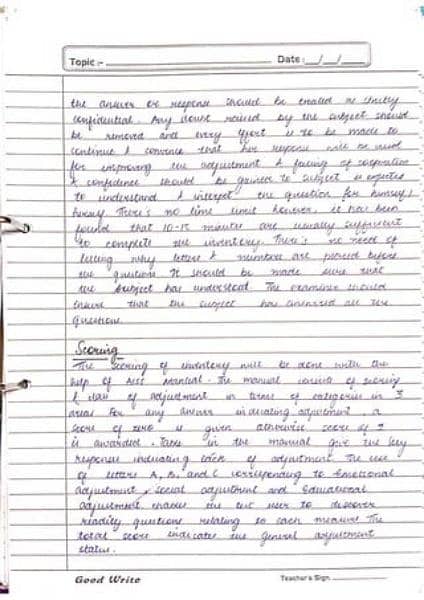 Topic :-
Date: __/__/__
the answer or response should be treated as strictly
confidential. Any doubt raised by the subject should
be removed and every effort is to be made to
continue & convince that her response will be used
for improving the adjustment & feeling of cooperation
& confidence should be gained to subject is expected
to understand & interpret the question for himself/
herself. There's no time limit however, it has been
found that 10-15 minutes are usually sufficient
to complete the inventory. There's no need of
telling why letters & numbers are placed before
the questions. It should be made sure that
the subject has understood. The examiner should
ensure that the subject has answered all the
questions.
Scoring
The scoring of inventory will be done with the
help of AISS Manual. The manual consists of scoring
& of adjustment in terms of categories in 3
areas. For any answer indicating adjustment, a
score of zero is given otherwise score of 1
is awarded. in the manual give the key
response indicating lack of adjustment. The use
of letters A, B, and C corresponding to Emotional
adjustment, social adjustment and Educational
adjustment the test user to discover
readily questions relating to each measure. The
total score indicates the general adjustment
status.
Good Write
Teacher's Sign